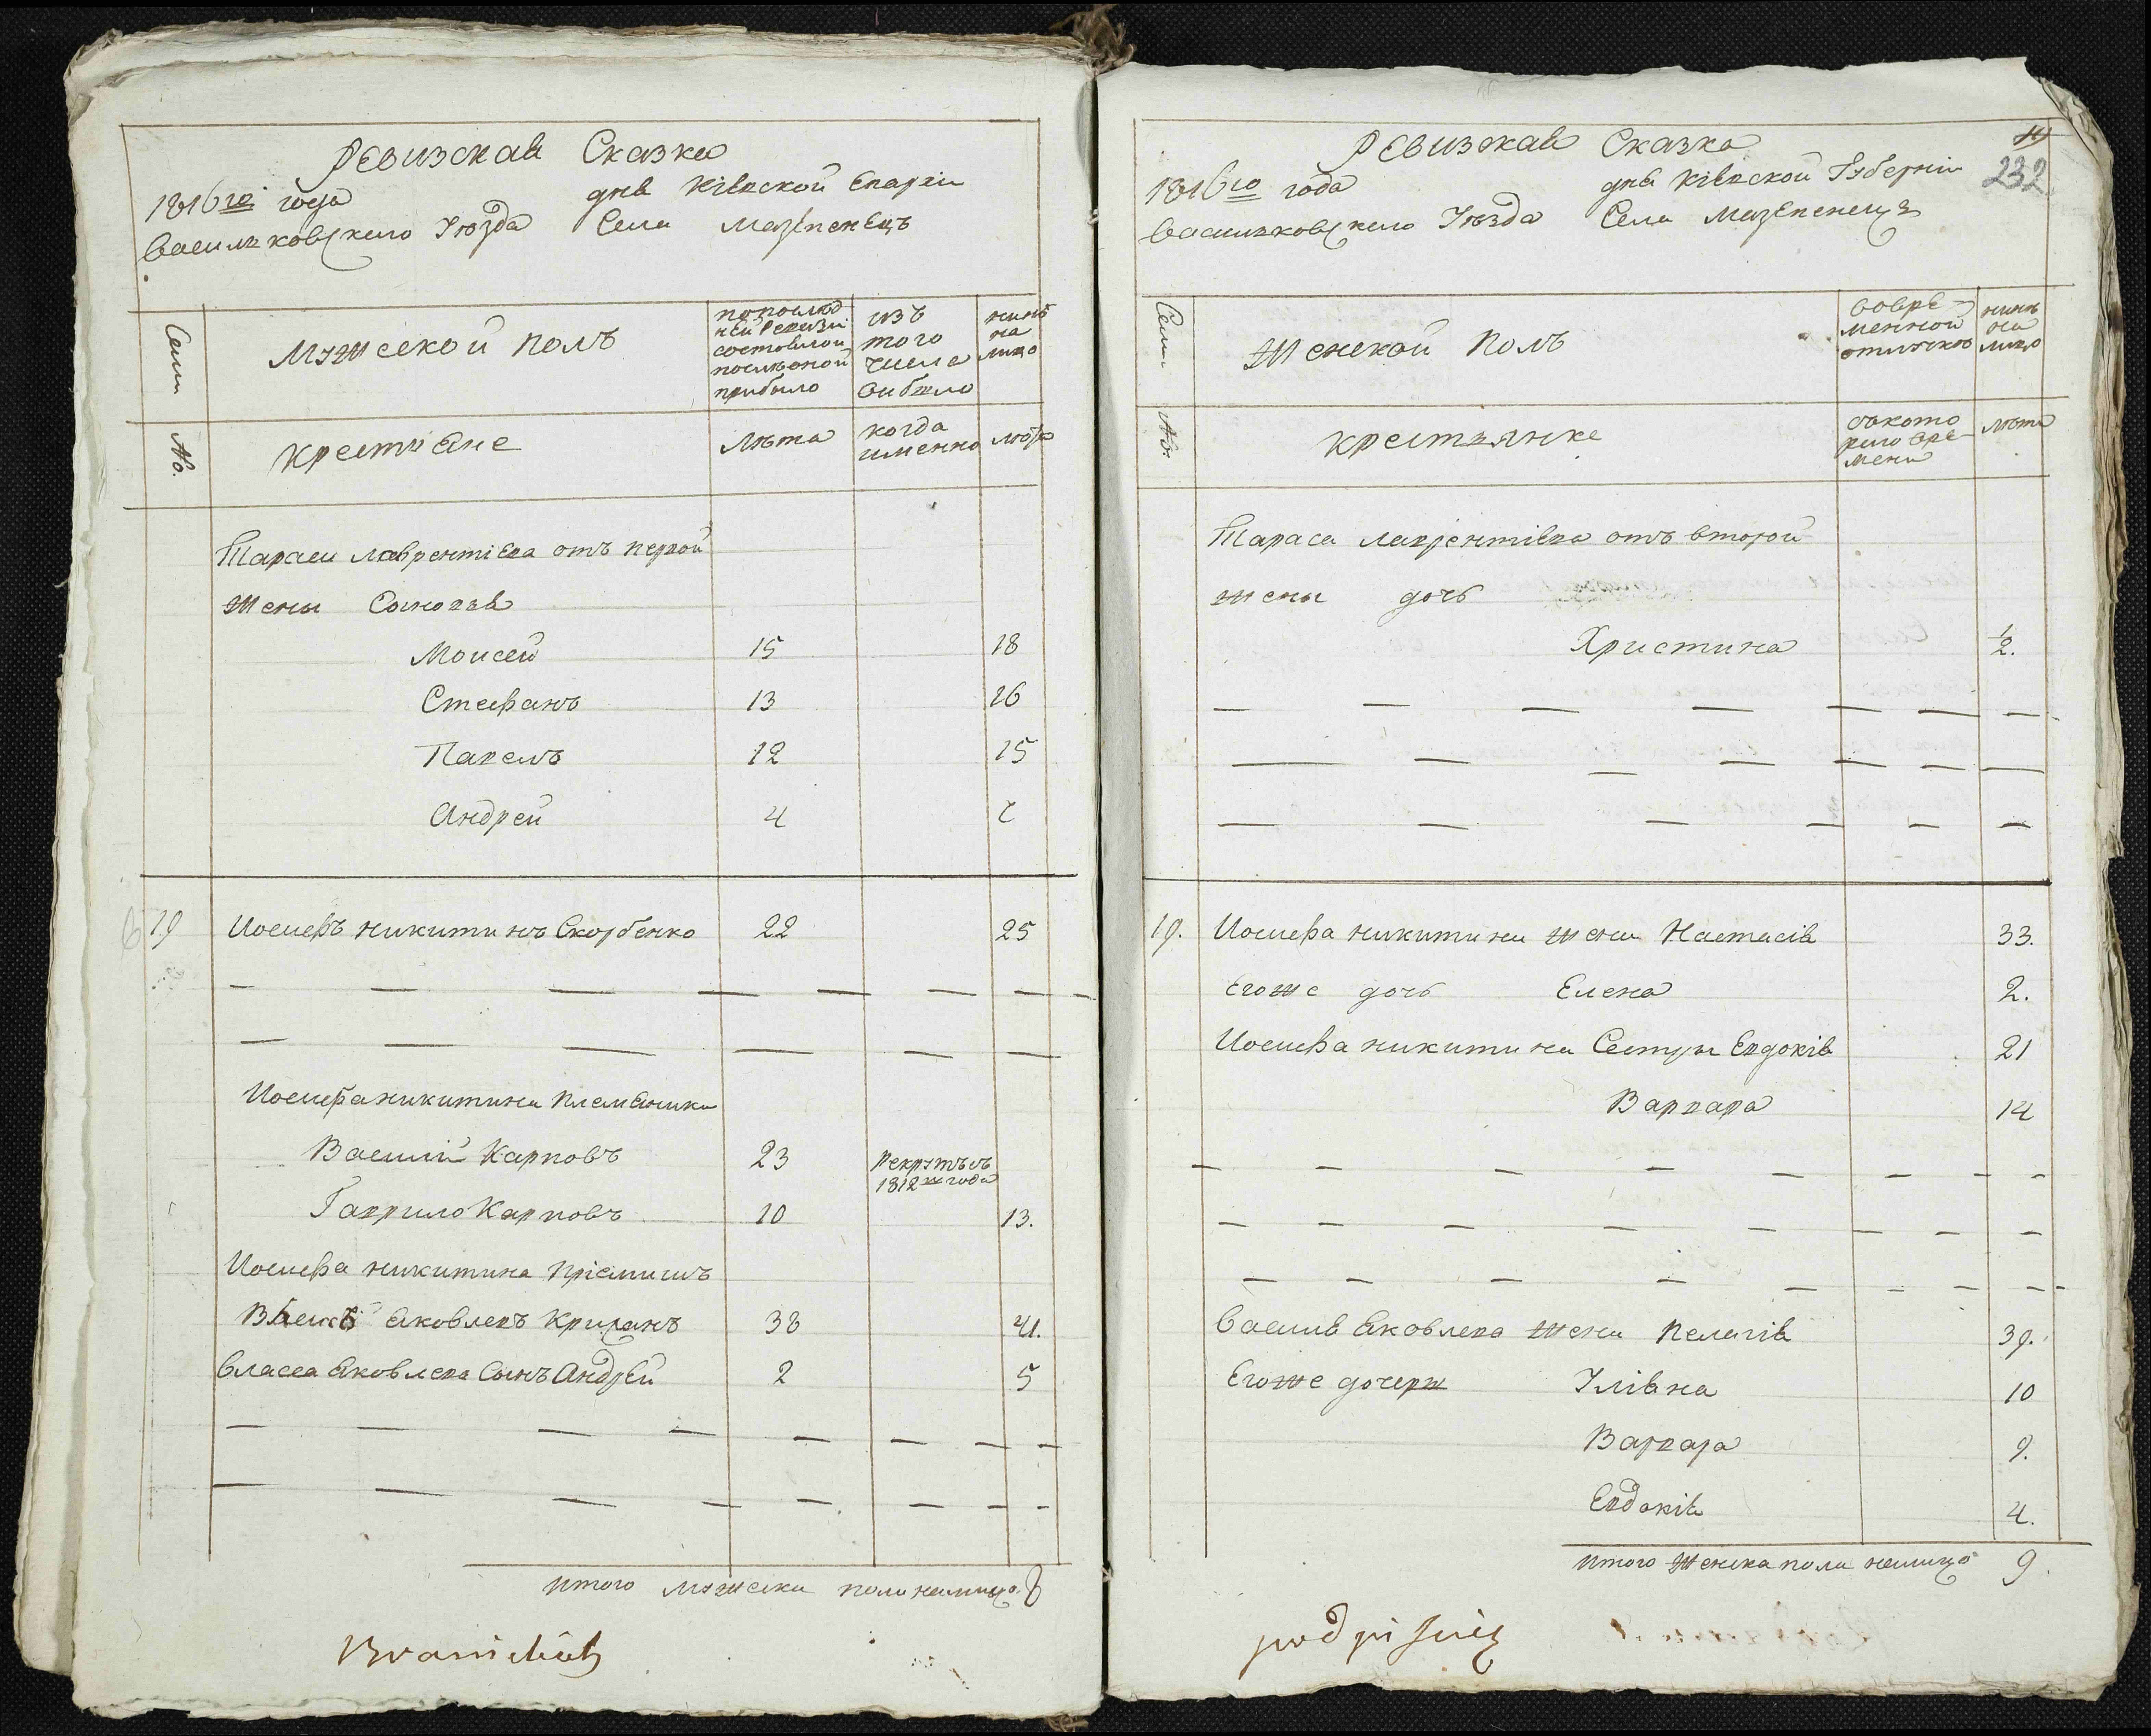 Ревизская Сказка
1816го года дня Кіевской Епархіи
Васильковскаго Уѣзда Села Мазепенецъ
Семьи
Мужескои полъ
по послѣд
ней Ревизіи
состояло и
послѣ оной
прибыло
изъ
того
числа
выбыло
нинѣ
на
лицо
№.
крестьяне
Лѣта
когда
именно
лѣта
Тараса Лаврентіева отъ первой
жены Сыновья
Моисей 15 18
Стефанъ 13 16
Павелъ 12 15
Андрей 4 7
19 Иосифъ Никитинъ Скорбенко 22 25
Иосифа Никитина племеники
Василій Карповъ 23 рекрутъ съ
1812го года
Гаврило Карповъ 10 13.
Иосифа Никитина пріемишъ
Яковлевъ 38 41.
Власса Яковлева Сынъ Андрей 2 5
итого мужеска пола налицо 8
Branickich
232
Ревизкая Сказка
1816го года дня Кіевской Губерніи
Васильковскаго Уѣзда Села Мазепенецъ
Семьи
Женской Полъ
вовре
менной
отлучкѣ
нинѣ
на
лицо
№.
крестьянке
съ кото
раго вре
мени
лѣта
Тараса Лаврентіева отъ второй
жены дочь
Христина 1/2.
19. Иосифа Никитина жена Настасія 33.
Егоже дочь Елена 2.
Иосифа Никитина Сестры Евдокія 21
Варвара 14
Василя Яковлева жена Пелагія 39.
Егоже дочеры Уліяна 10
Варвара 9.
Евдокія 4.
итого женска пола налицо 9.
podpisuię